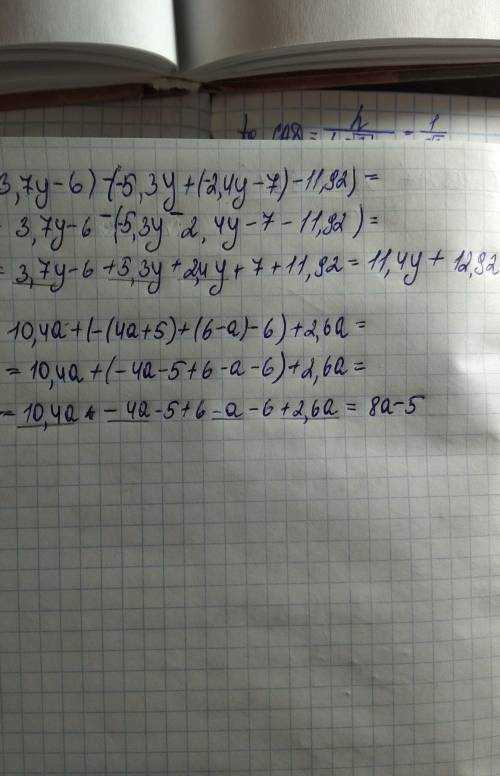 to
= h / = 1 /
3,7y-6) -(-5,3y+(-2,4y-7)-11,92) =
3,7y-6-(-5,3y-2,4y-7-11,92) =
= 3,7y-6+5,3y+2,4y+7+11,92 = 11,4y + 12,92
10,4a+(-(4a+5)+(6-a)-6)+2,6a=
= 10,4a+(-4a-5+6-a-6)+2,6a=
= 10,4a - 4a-5+6-a-6+2,6a = 8a-5